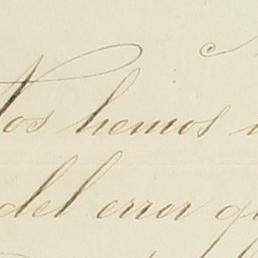 Nos hemos
del error